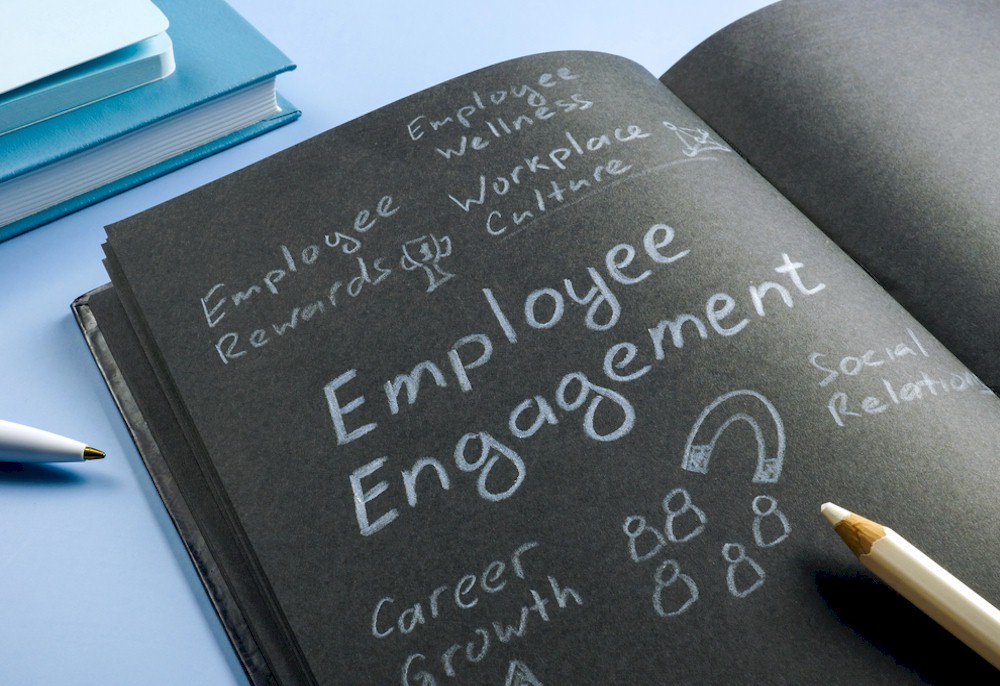 Employee
Wellness
Workplace
Culture
Employee
Rewards
Employee
Engagement
Social
Relation
Career
Growth